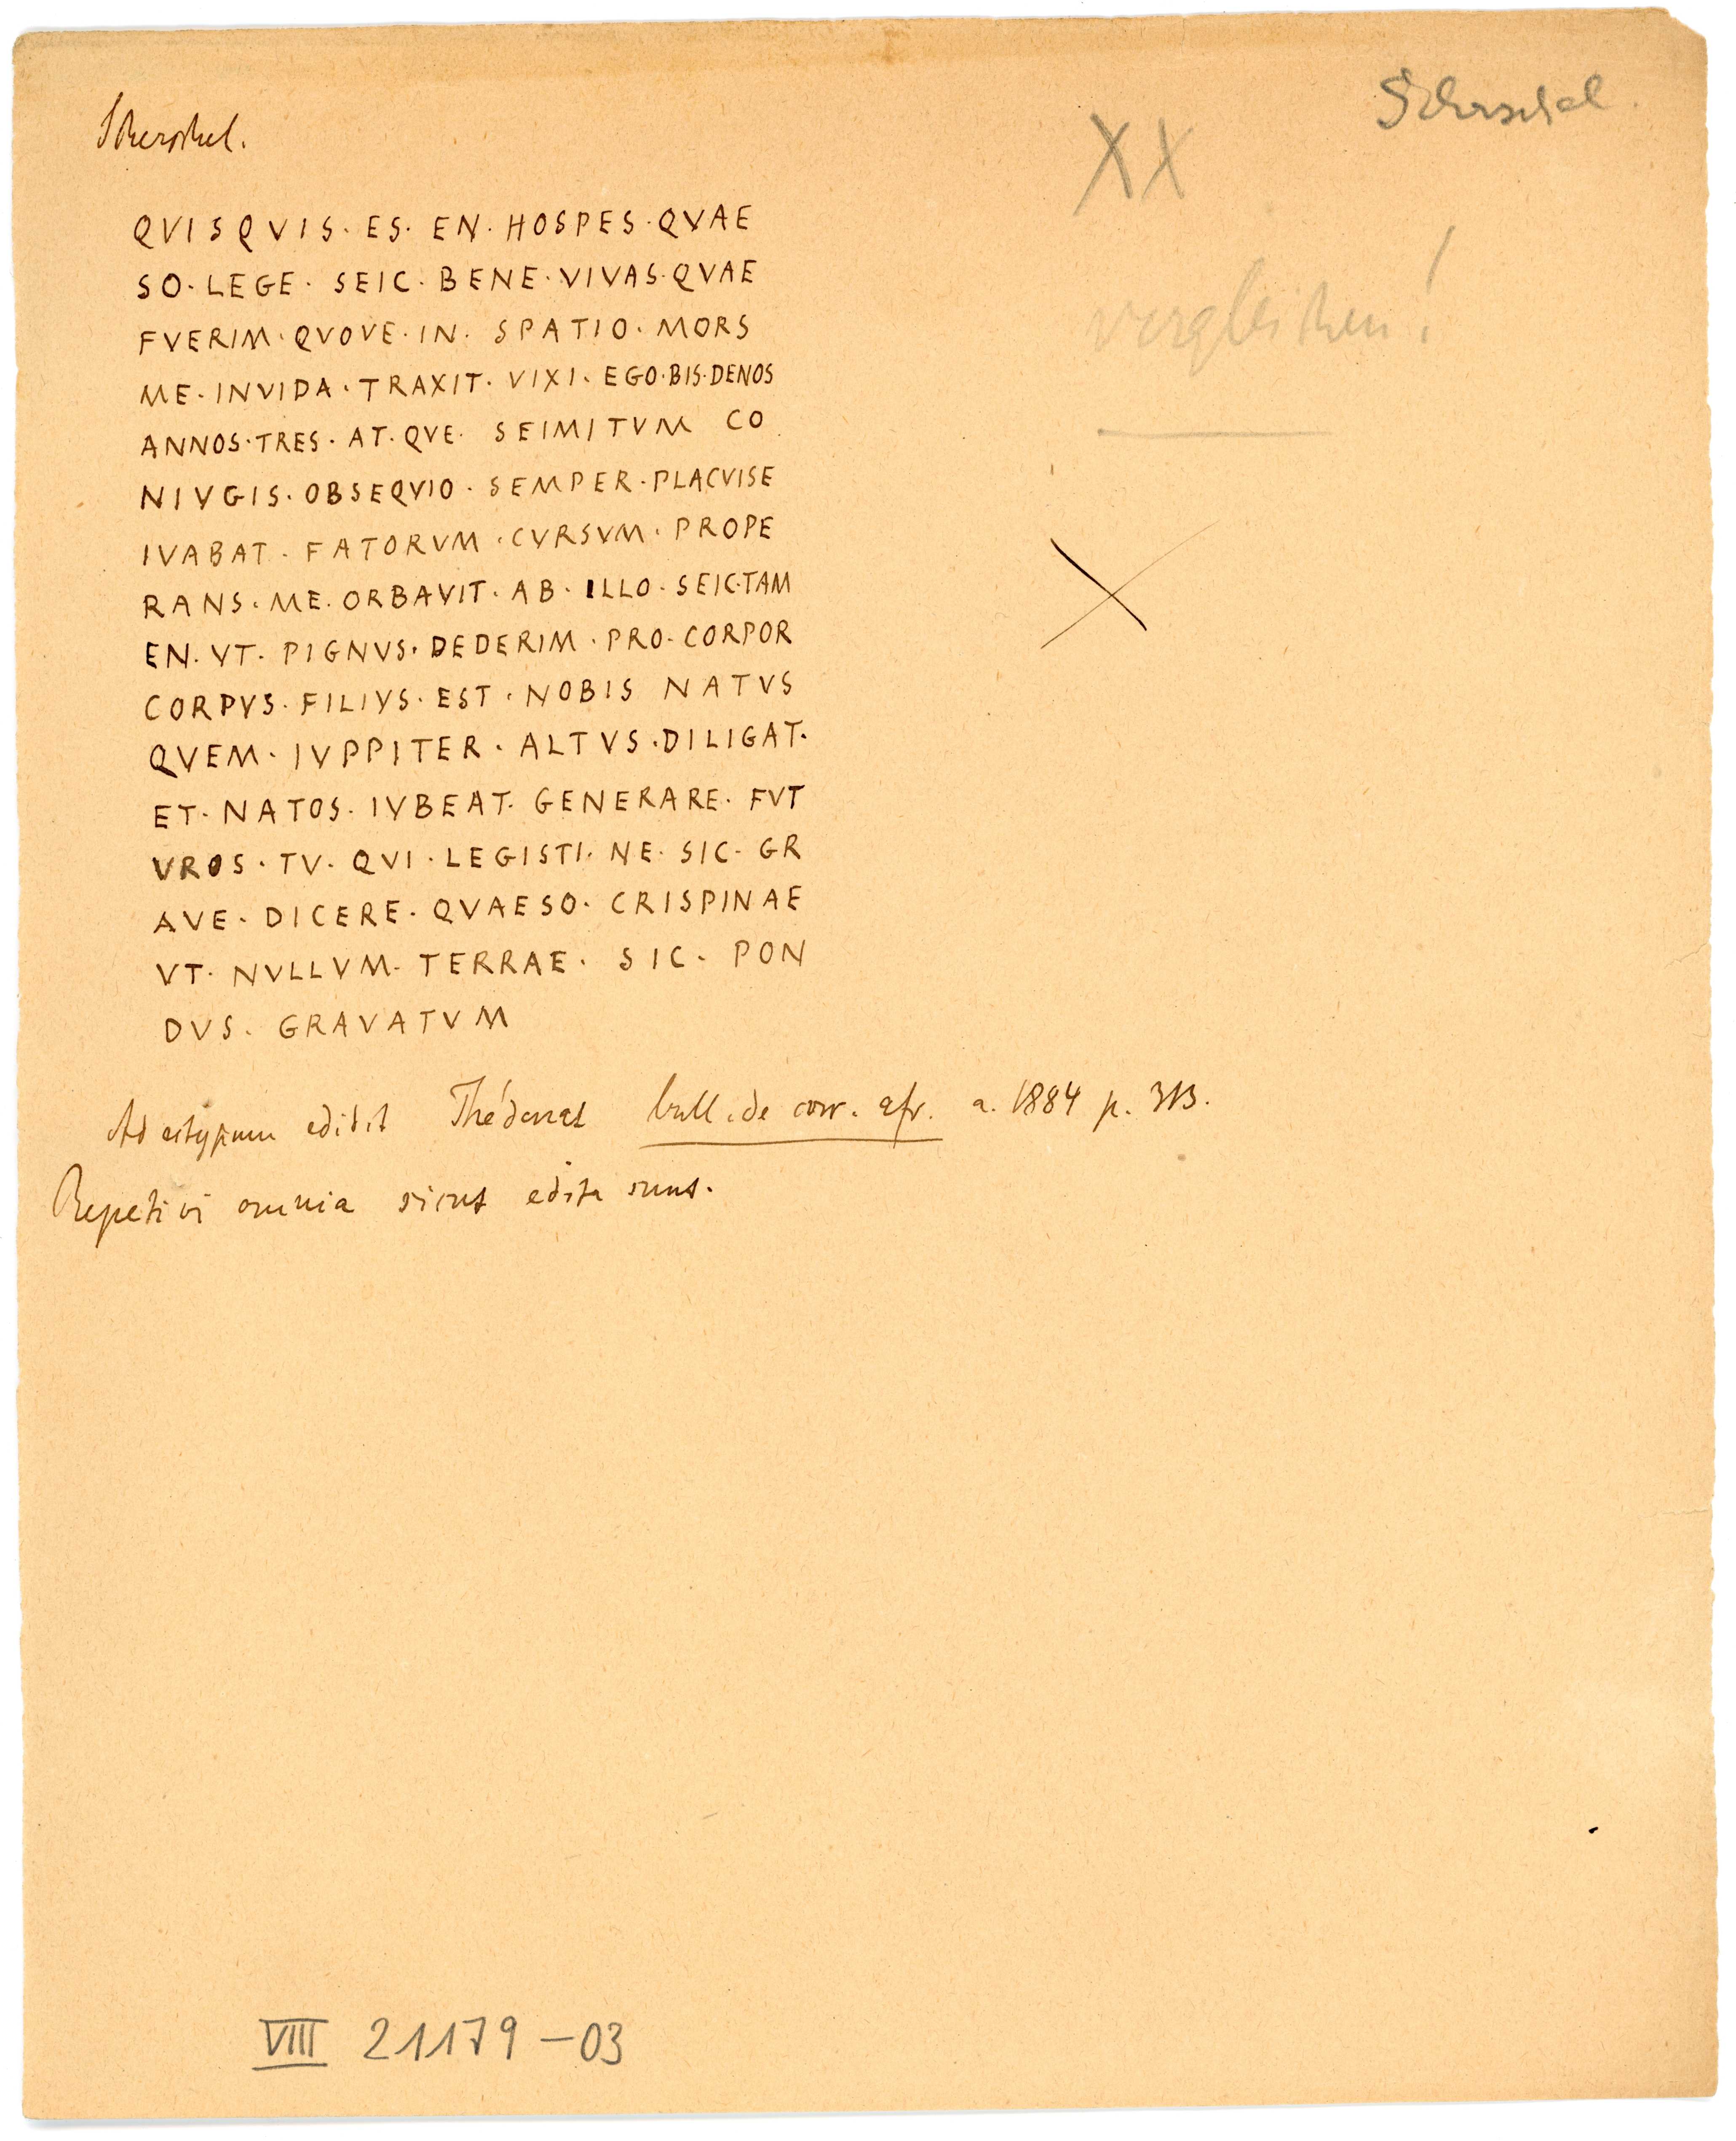 Scherschel.
Scherschel.
XX
vergleichen!
QVISQVIS · ES · EN · HOSPES · QVAE
SO · LEGE · SEIC · BENE · VIVAS · QVAE
FVERIM · QVOVE · IN · SPATIO · MORS
ME · INVIDA · TRAXIT · VIXI · EGO · BIS · DENOS
ANNOS · TRES · AT · QVE · SEIMITVM CO
NIVGIS · OBSEQVIO · SEMPER · PLACVISE
IVABAT · FATORVM · CVRSVM · PROPE
RANS · ME · ORBAVIT · AB · ILLO · SEIC · TAM
EN · VT · PIGNVS · DEDERIM · PRO · CORPOR
CORPVS · FILIVS · EST · NOBIS NATVS
QVEM · IVPPITER · ALTVS · DILIGAT ·
ET · NATOS · IVBEAT · GENERARE · FVT
VROS · TV · QVI · LEGISTI · NE · SIC · GR
AVE · DICERE · QVAESO · CRISPINAE
VT · NVLLVM · TERRAE · SIC · PON
DVS · GRAVATVM
Ad ectypum edidit Thédenat bull. de corr. afr. a. 1884 p. 313.
Repetivi omnia sicut edita sunt.
VIII 21179-03